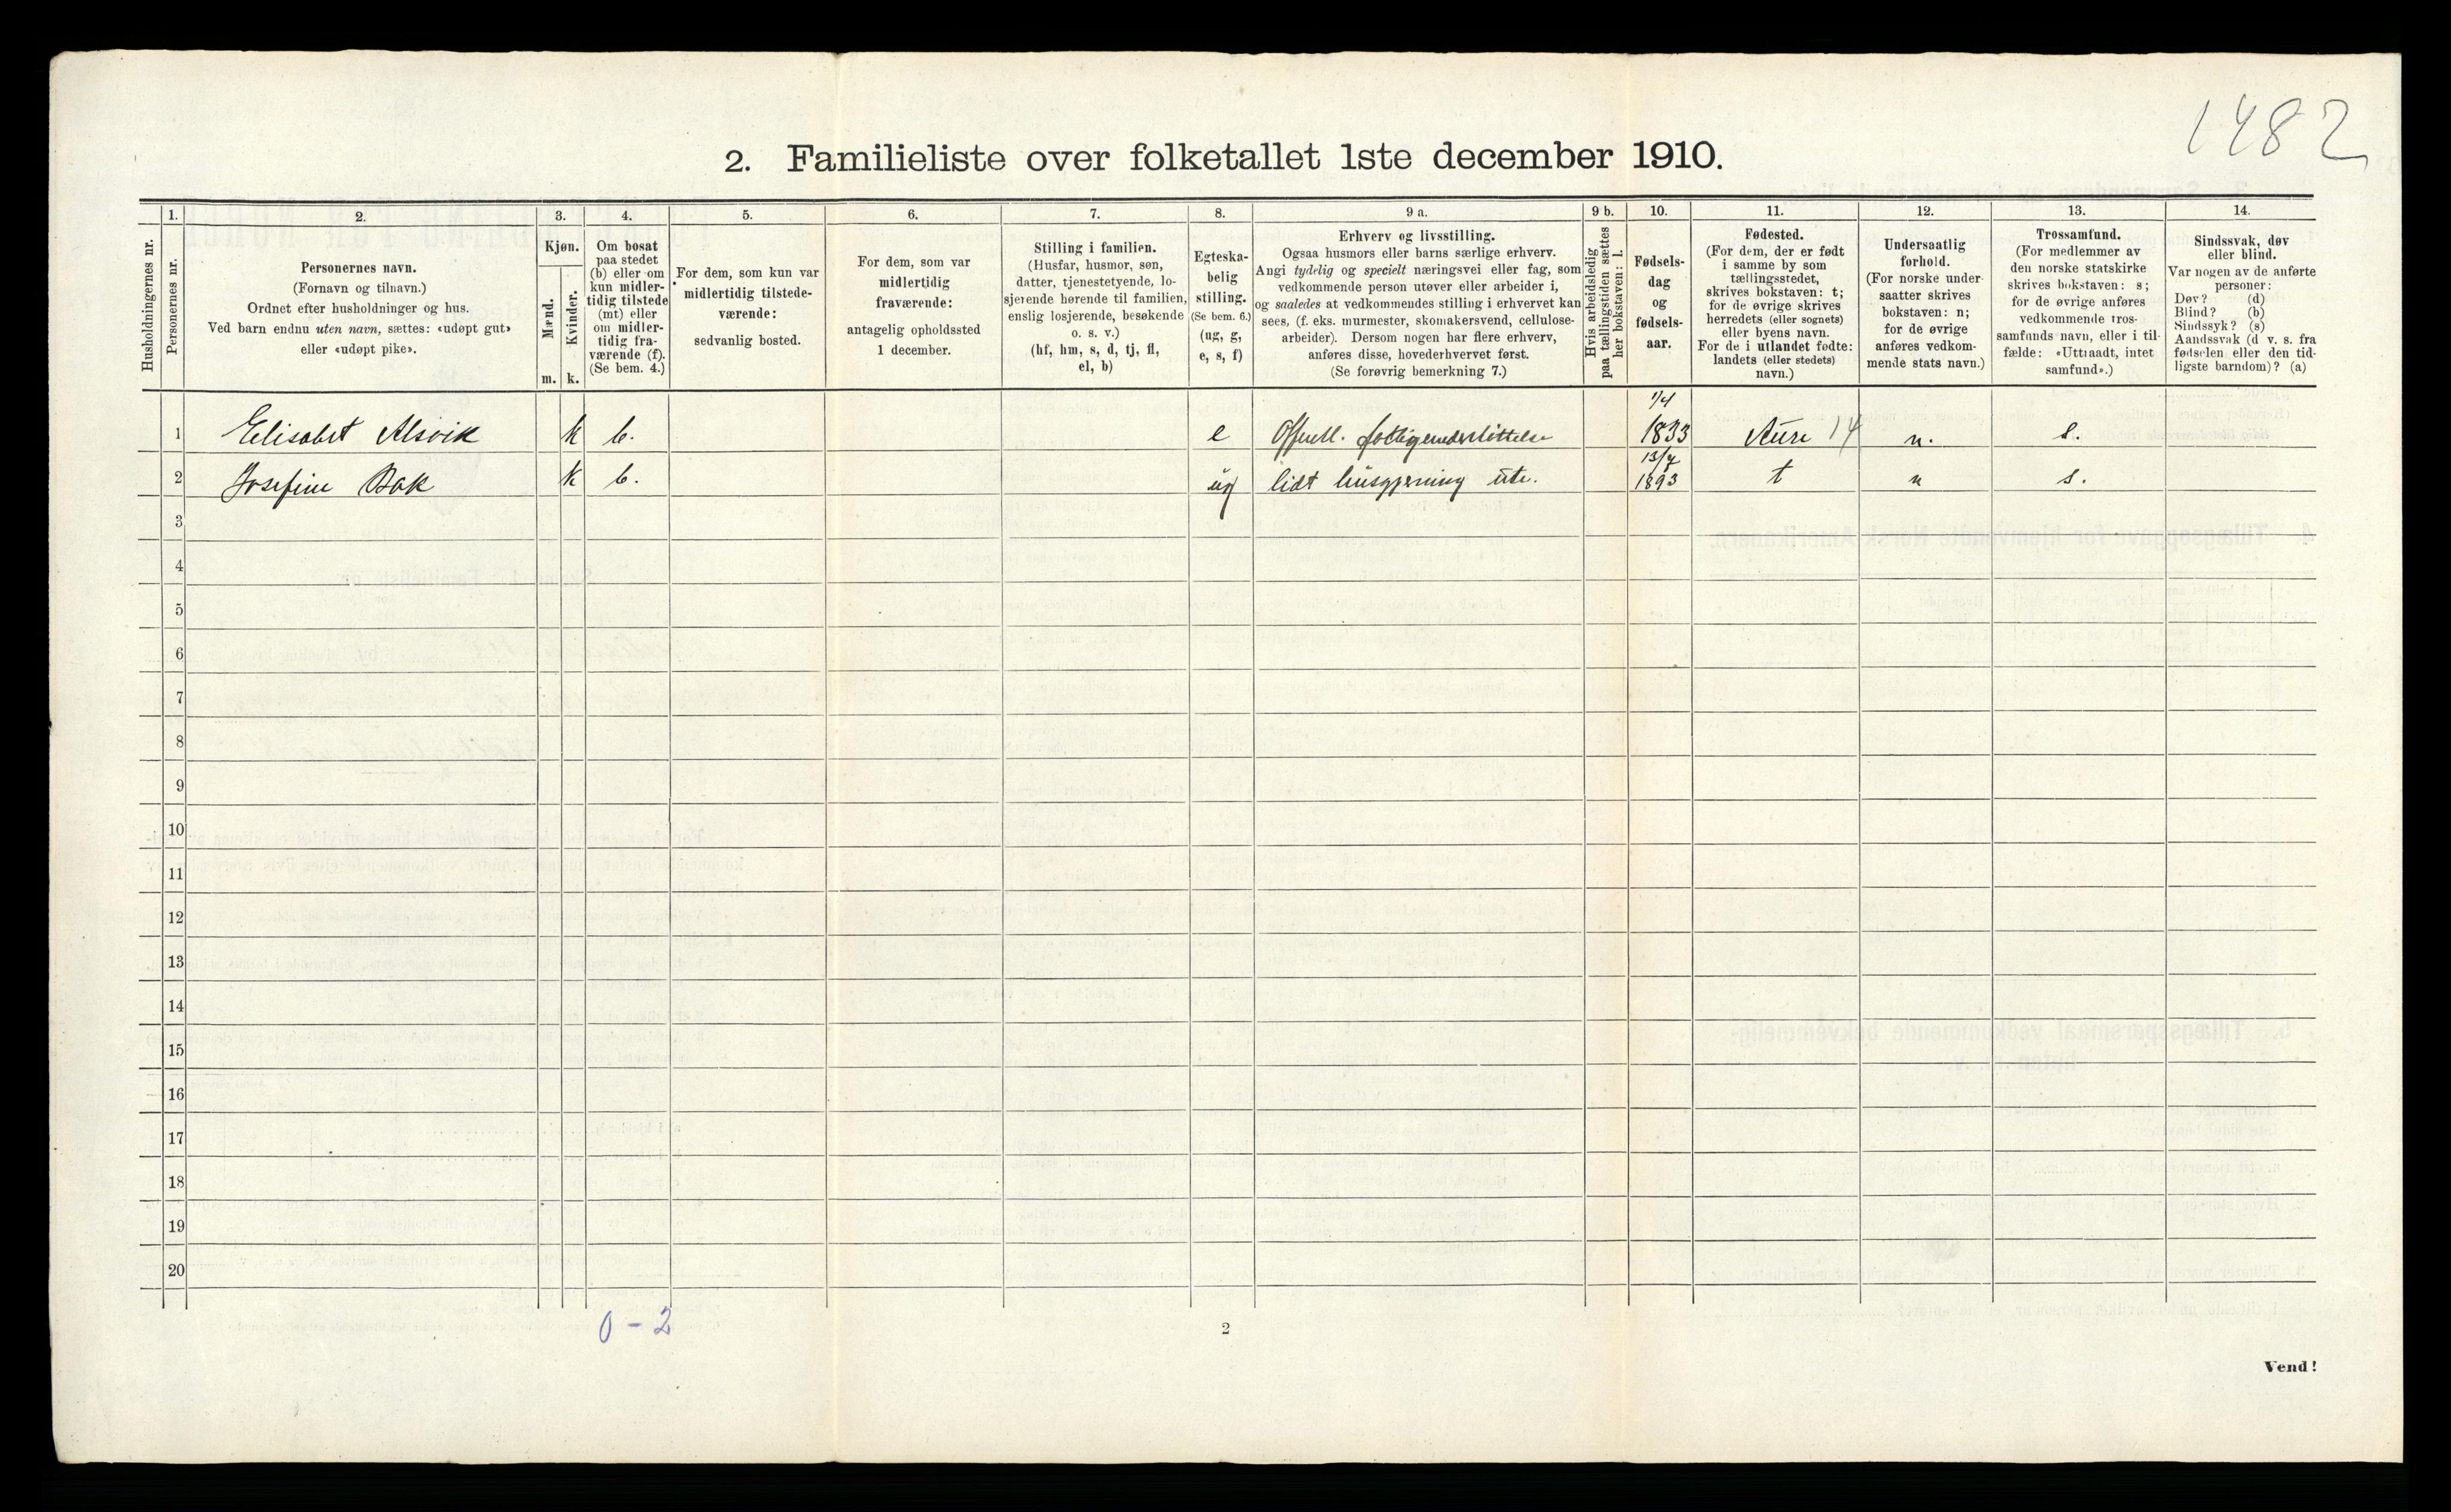 1482
2. Familieliste over folketallet 1ste december 1910.
Husholdningernes nr.
1.
Personernes nr.
2.
Personernes navn.
(Fornavn og tilnavn.)
Ordnet efter husholdninger og hus.
Ved barn endnu uten navn, sættes: «udøpt gut»
eller «udøpt pike».
3.
Kjøn.
Mænd.
Kvinder.
m. k.
4.
Om bosat
paa stedet
(b) eller om
kun midler-
tidig tilstede
(mt) eller
om midler-
tidig fra-
værende (f).
(Se bem. 4.)
5.
For dem, som kun var
midlertidig tilstede-
værende:
sedvanlig bosted.
6.
For dem, som var
midlertidig
fraværende:
antagelig opholdssted
1 december.
7.
Stilling i familien.
(Husfar, husmor, søn,
datter, tjenestetyende, lo-
sjerende hørende til familien,
enslig losjerende, besøkende
o. s. v.)
(hf, hm, s, d, tj, fl,
el, b)
8.
Egteska-
belig
stilling.
(Se bem. 6.)
(ug, g,
e, s, f)
9 a.
Erhverv og livsstilling.
Ogsaa husmors eller barns særlige erhverv.
Angi tydelig og specielt næringsvei eller fag, som
vedkommende person utøver eller arbeider i,
og saaledes at vedkommendes stilling i erhvervet kan
sees, (f. eks. murmester, skomakersvend, cellulose-
arbeider). Dersom nogen har flere erhverv,
anføres disse, hovederhvervet først.
(Se forøvrig bemerkning 7.)
9 b.
Hvis arbeidsledig
paa tællingstiden sættes
her bokstaven: l.
10.
Fødsels-
dag
og
fødsels-
aar.
11.
Fødested.
(For dem, der er født
i samme by som
tællingsstedet,
skrives bokstaven: t;
for de øvrige skrives
herredets (eller sognets)
eller byens navn.
For de i utlandet fødte:
landets (eller stedets)
navn.)
12.
Undersaatlig
forhold.
(For norske under-
saatter skrives
bokstaven: n;
for de øvrige
anføres vedkom-
mende stats navn.)
13.
Trossamfund.
(For medlemmer av
den norske statskirke
skrives bokstaven: s;
for de øvrige anføres
vedkommende tros-
samfunds navn, eller i til-
fælde: «Uttraadt, intet
samfund».)
14.
Sindssvak, døv
eller blind.
Var nogen av de anførte
personer:
Døv? (d)
Blind? (b)
Sindssyk? (s)
Aandssvak (d v. s. fra
fødselen eller den tid-
ligste barndom)? (a)
1 Elisabet Alsvik k b. e Offentl. fattigunderstöttelse 1/4 1833 Aure 14 n. s.
2 Josefine Bak k b. ug lidt husgjerning ute. 13/7 1893 t n s.
3
4
5
6
7
8
9
10
11
12
13
14
15
16
17
18
19
20
0 - 2
2
Vend!